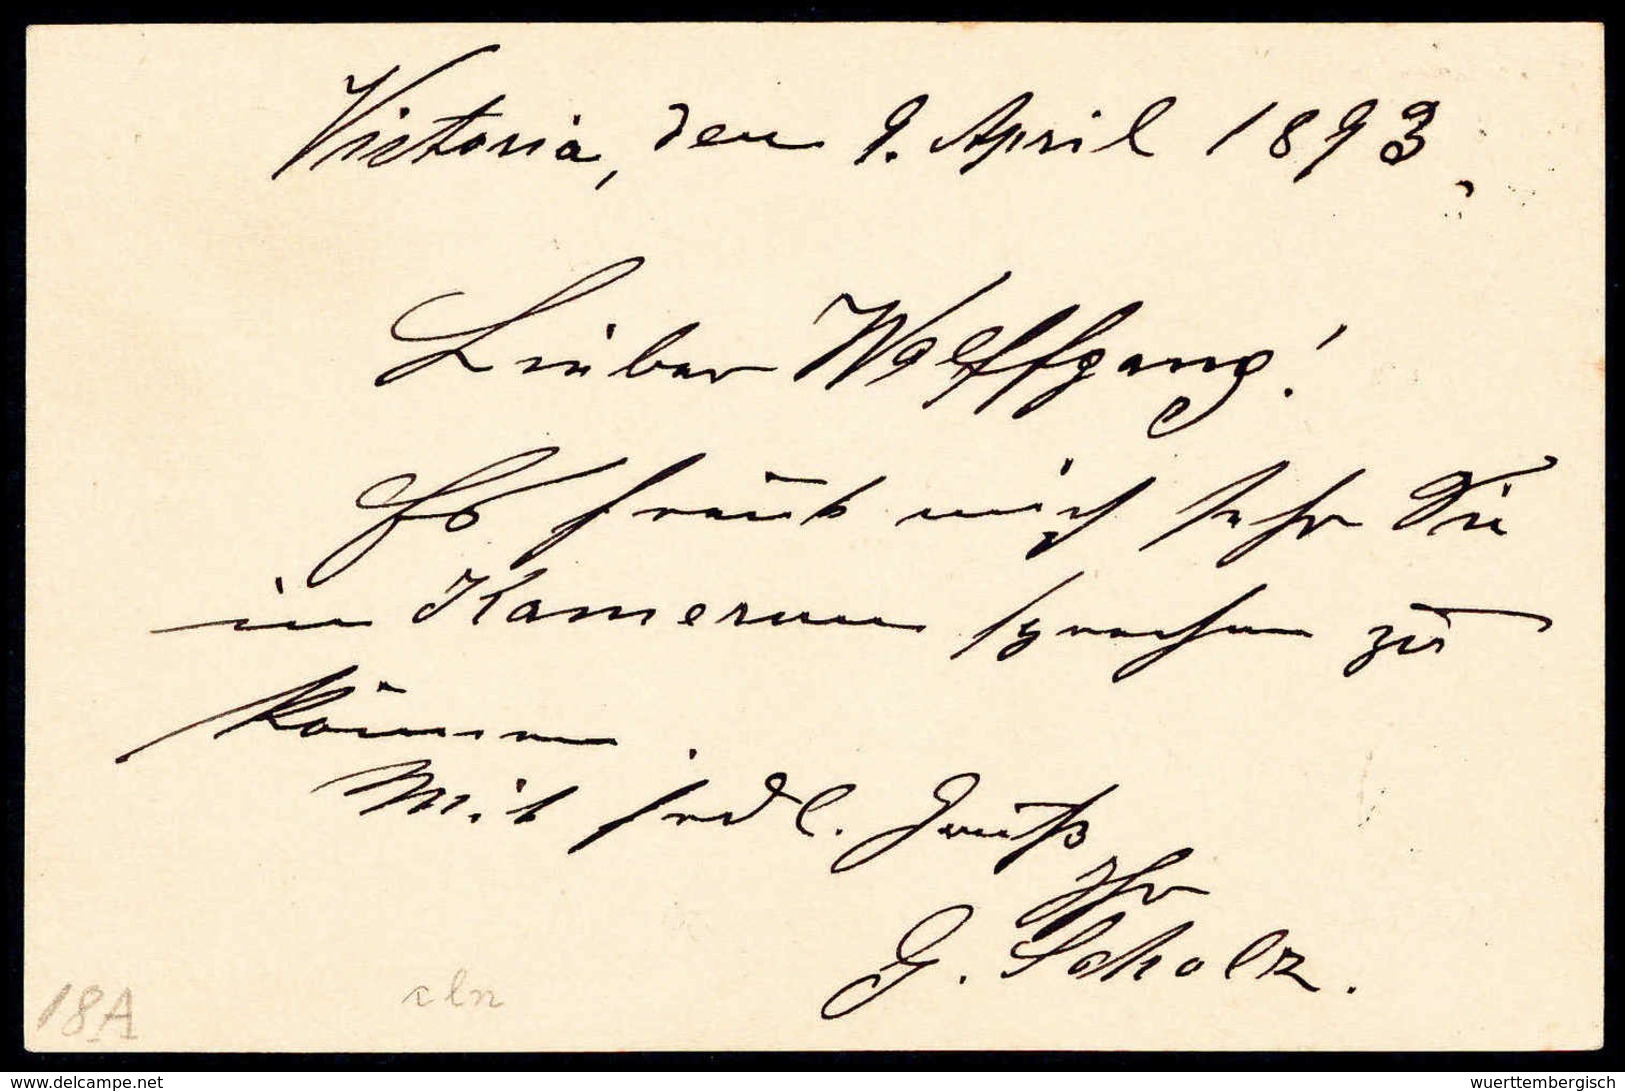 Victoria, den 9. April 1893.
Lieber Wolffgang!
Es freut mich sehr Sie
in Kamerun sprechen zu
können.
Mit frdl. Gruß
Ihr
G. Scholz.
18A
www.delcampe.net
wuerttembergisch